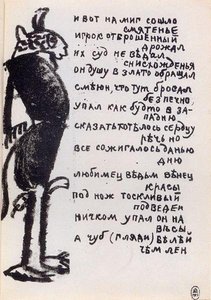 И ВОТ НА МИГ СОШЛО
СМЯТЕНЬЕ
ИГРОК ОТБРОШЕННЫЙ
ДРОЖАЛ
ИХ СУД НЕ ВѢДАЛ
СНИСХОЖДЕНЬЯ
ОН ДУШУ В ЗЛАТО ОБРАЩАЛ
СМЕЮН, ЧТО ТУТ БРОСАЛ
БЕЗПЕЧНО,
УПАЛ КАК БУДТО В ЗА-
ПАДНЮ
СКАЗАТЬ ХОТѢЛОСЬ СЕРДЦУ
РѢЧЬ НО
ВСЕ СОЖИГАЛОСЬ ДАНЬЮ
ДНЮ
ЛЮБИМЕЦ ВЕДЬМ ВѢНЕЦ
КРАСЫ
ПОД НОЖ ТОСКЛИВЫЙ
ПОДВЕДЕН
НИЧКОМ УПАЛ ОН НА
ВѢСЫ
А ЧУБ (ГЛЯДИ) БѢЛЕЙ
ЧѢМ ЛЕН